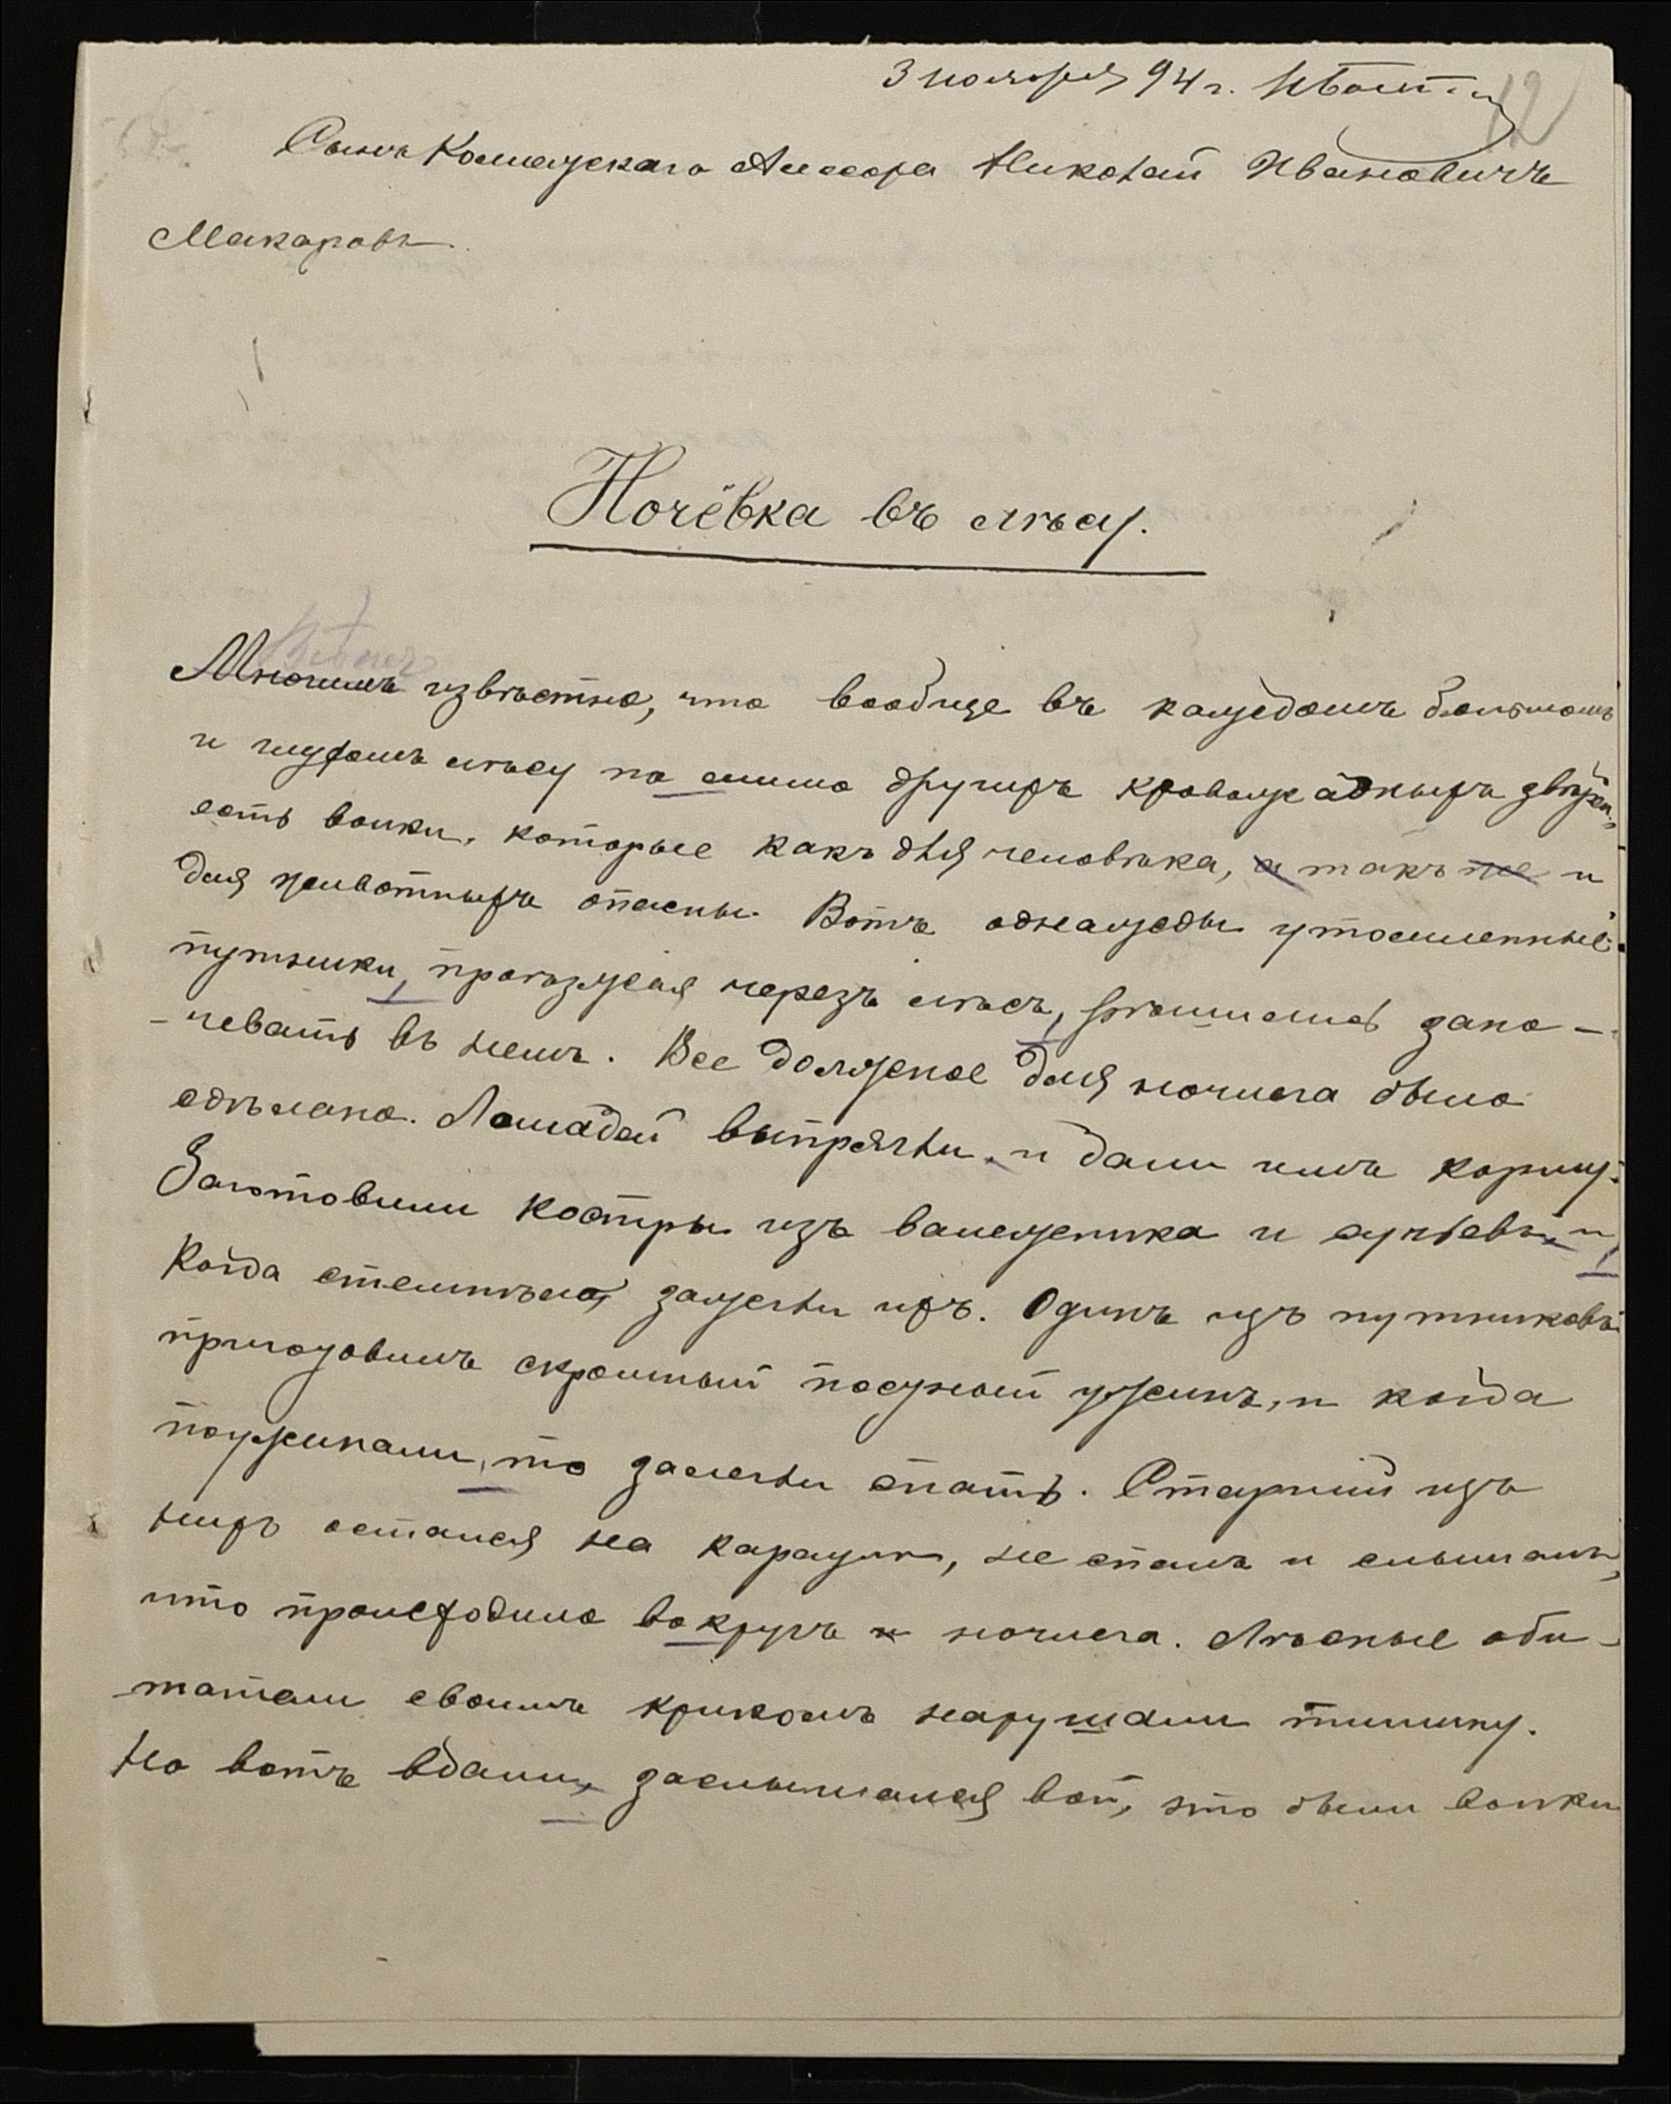 3 ноября 94 г.
12
Сынъ Коллежскаго Ассесора Николай Ивановичъ
Макаровъ.
Ночёвка въ лѣсу.
Многимъ извѣстно, что вообще въ каждомъ большомъ
и глухомъ лѣсу по симо другихъ кровожадныхъ звѣрей,
есть волки, которые какъ для человѣка, а такъ же и
для животныхъ опасны. Вотъ однажды утомленные
путники, проѣзжая черезъ лѣсъ, рѣшились зано-
-чевать въ немъ. Все должное для ночлега было
сдѣлано. Лошадей выпрягли, и дали имъ корму.
Заготовили костры изъ валежника и сучьевъ, и
когда стемнѣло, зажегли ихъ. Одинъ изъ путниковъ
приготовилъ скромный постный ужинъ, и когда
поужинали, то залегли спать. Старший изъ
нихъ остался на караулѣ, не спалъ и слышалъ,
что происходило вокругъ ночлега. Лѣсные оби-
татели своимъ крикомъ нарушали тишину.
Но вотъ вдали, заслышался вой, это были волки